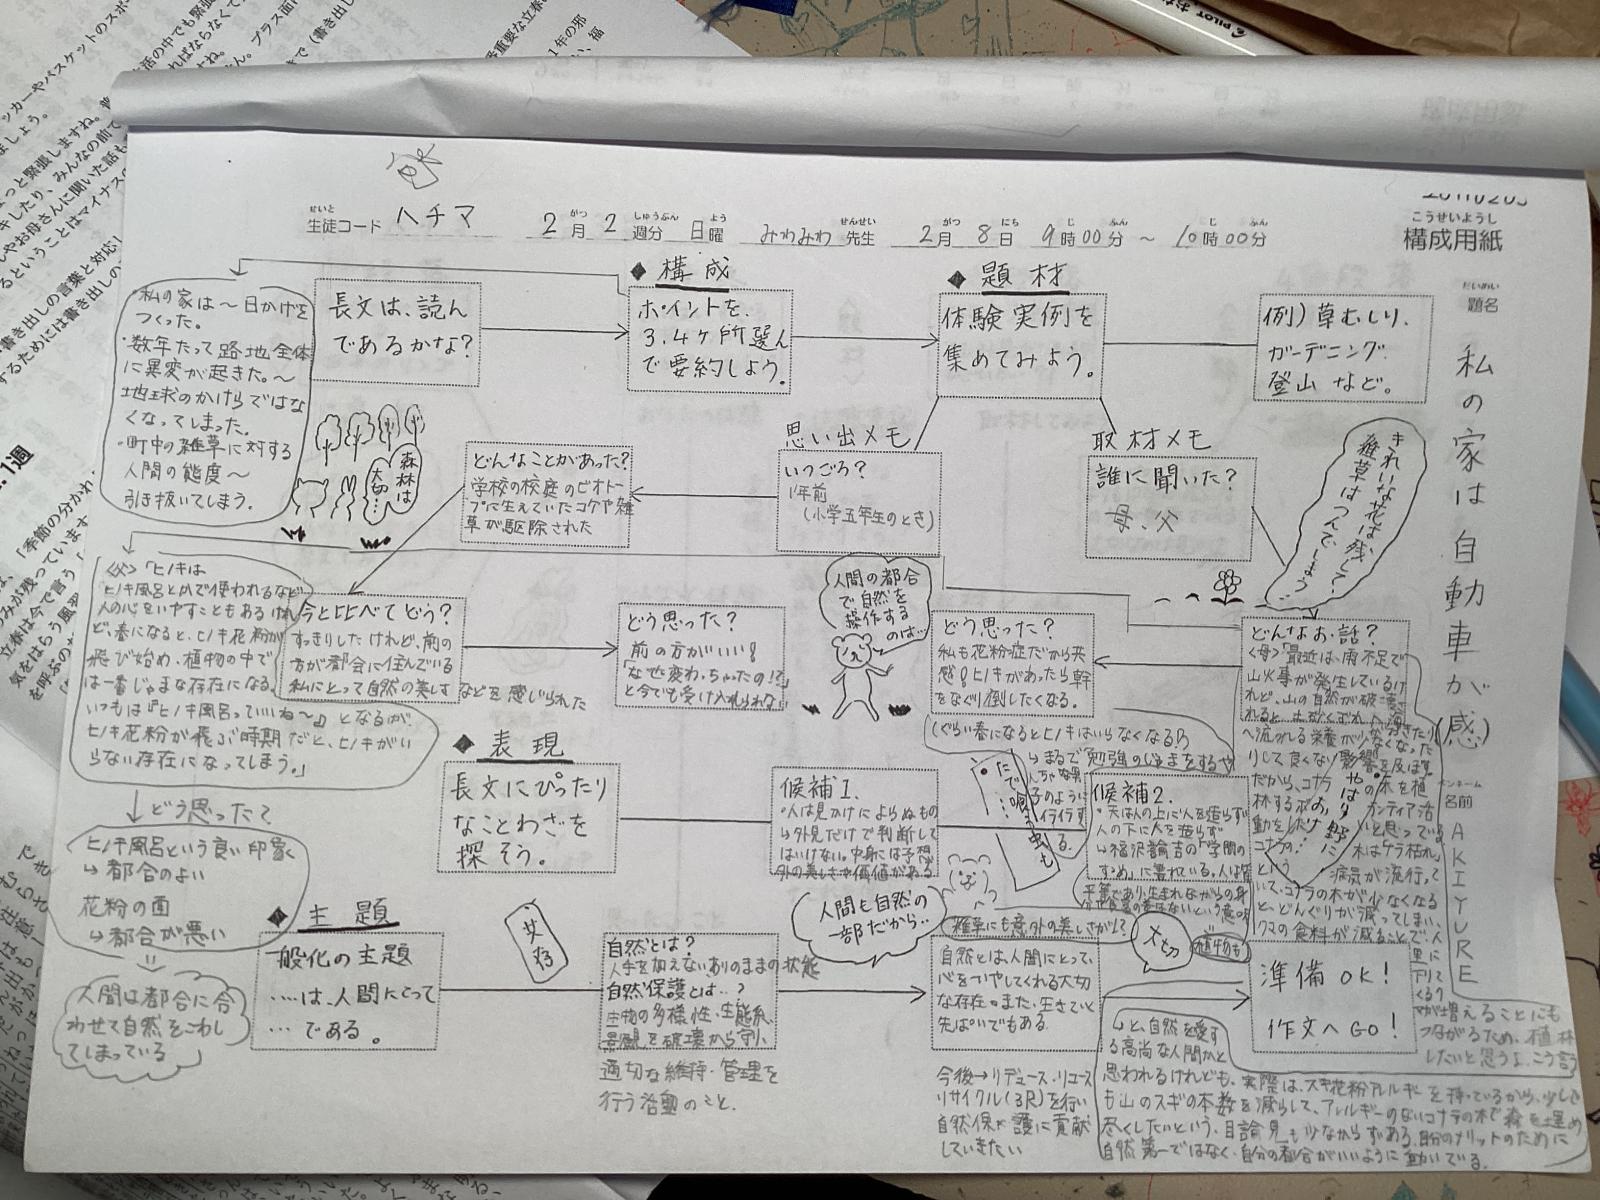 構成用紙
こうせいようし
生徒コード ハチマ 2月2週分 日曜 みわみわ先生 2月8日 9時00分 ~ 10時00分
題名
だいめい
私の家は自動車が(感)
名前
AKIYURE
◆構成
長文は、読ん
であるかな?
ポイントを、
3.4ヶ所選ん
で要約しよう。
私の家は~日かげを
つくった。
・数年たって路地全体
に異変が起きた。~
地球のかけらではな
くなってしまった。
・町中の雑草に対する
人間の態度~
引き抜いてしまう。
◆題材
体験実例を
集めてみよう。
例)草むしり、
ガーデニング
登山など。
森林は
大切…
思い出メモ
いつごろ?
1年前
(小学五年生のとき)
どんなことがあった?
学校の校庭のビオトー
プに生えていたコケや雑
草が駆除された
今と比べてどう?
すっきりしたけれど、前の
方が都会に住んでいる
私にとって自然の美しさ
などを感じられた
どう思った?
前の方がいい!
「なぜ変わっちゃったの!?」
と今でも受け入れられない
取材メモ
誰に聞いた?
母、父
きれいな花は残して、
雑草はつんでしまう…
どんなお話?
<母>「最近は、雨不足で
山火事が発生しているけ
れど、山の自然が破壊さ
れると
海
へ流れる栄養が少なくなった
りして良くない影響を及ぼす。
だから、コナラの木を植
林するボランティア活
動をしたいと思っている。
コナラの木はナラ枯れ
という病気が流行って
いて、コナラの木が少なくなる
と、どんぐりが減ってしまい、
クマの食料が減ることで、人
里に
下りて
くるク
マが増えることにも
つながるため、植林
したいと思うよ。こう言う
と、自然を愛す
る高尚な人間かと
思われるけれども、実際は、スギ花粉アレルギーを持っているから、少しで
も山のスギの本数を減らして、アレルギーのないコナラの木で森を埋め
尽くしたいという、目論見も少なからずある。自分のメリットのために
自然第一ではなく、自分の都合がいいように動いている。
<父>「ヒノキは
ヒノキ風呂とかで使われるなど
人の心をいやすこともあるけれ
ど、春になると、ヒノキ花粉が
飛び始め、植物の中で
は一番じゃまな存在になる。
いつもは『ヒノキ風呂っていいね~』となるが、
ヒノキ花粉が飛ぶ時期だと、ヒノキがい
らない存在になってしまう。」
どう思った?
私も花粉症だから共
感!ヒノキがあったら幹
をなぐり倒したくなる。
(ぐらい春になるとヒノキはいらなくなる!?)
まるで勉強のじゃまをするや
んちゃな男
子のように
イライラす
る。
人間の都合
で自然を
操作する
のは…
どう思った?
ヒノキ風呂という良い印象
↳都合のよい
花粉の面
↳都合が悪い
人間は都合に合
わせて自然をこわし
てしまっている
◆表現
長文にぴったり
なことわざを
探そう。
候補1.
・人は見かけによらぬもの
↳外見だけで判断して
はいけない。中身には予想
外の美しさや価値がある
たで喰う虫も
候補2.
・天は人の上に人を造らず
人の下に人を造らず
↳福沢諭吉の「学問の
すすめ」に書れている。人は皆
平等であり、生まれながらの身
という意味
雑草にも意外の美しさが!?
やはり野に
大切
植物も
◆主題
一般化の主題
….は、人間にとって
…である。
共存
自然とは?
人手を加えないありのままの状態
自然保護とは…?
生物の多様性、生態系、
景観を破壊から守り、
適切な維持・管理を
行う活動のこと。
人間も自然の
一部だから…
自然とは、人間にとって、
心をいやしてくれる大切
な存在。また、生きていく
先ぱいでもある。
今後→リデュース・リユース・
リサイクル(3R)を行い
自然保護に貢献
していきたい
準備OK!
作文へGO!